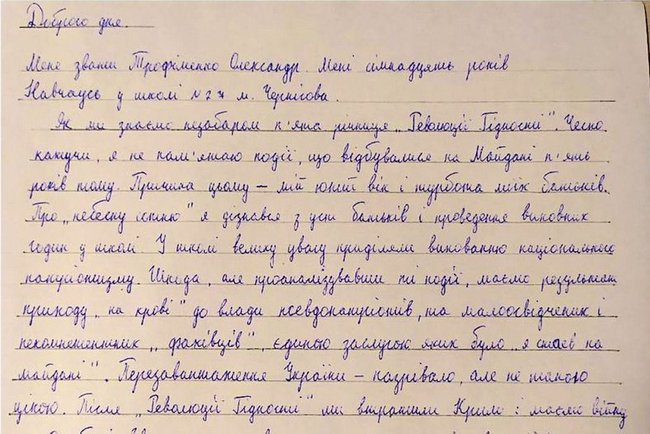 Доброго дня.
Мене звати Трофіменко Олександр. Мені сімнадцять років
Навчаусь у школі №27 м. Чернігова.
Як ми знаємо незабаром п'ята річниця „Революції Гідності". Чесно
кажучи, я не пам'ятаю події, що відбувалися на Майдані п'ять
років тому. Причина цьому – мій юний вік і турбота моїх батьків.
Про „небесну сотню" я дізнався з уст батьків і проведення виховних
годин у школі У школі велику увагу приділяли вихованню національного
патріотизму. Шкода, але проаналізувавши ті події, маємо результат
приходу „на крові" до влади псевдопатріотів, та малоосвідчених і
некомпетентних „фахівців", єдиною заслугою яких було „я стояв на
майдані". Перезавантаження України – назрівало, але не такою
ціною. Після „Революції Гідності" ми втратили Крим : маємо війну